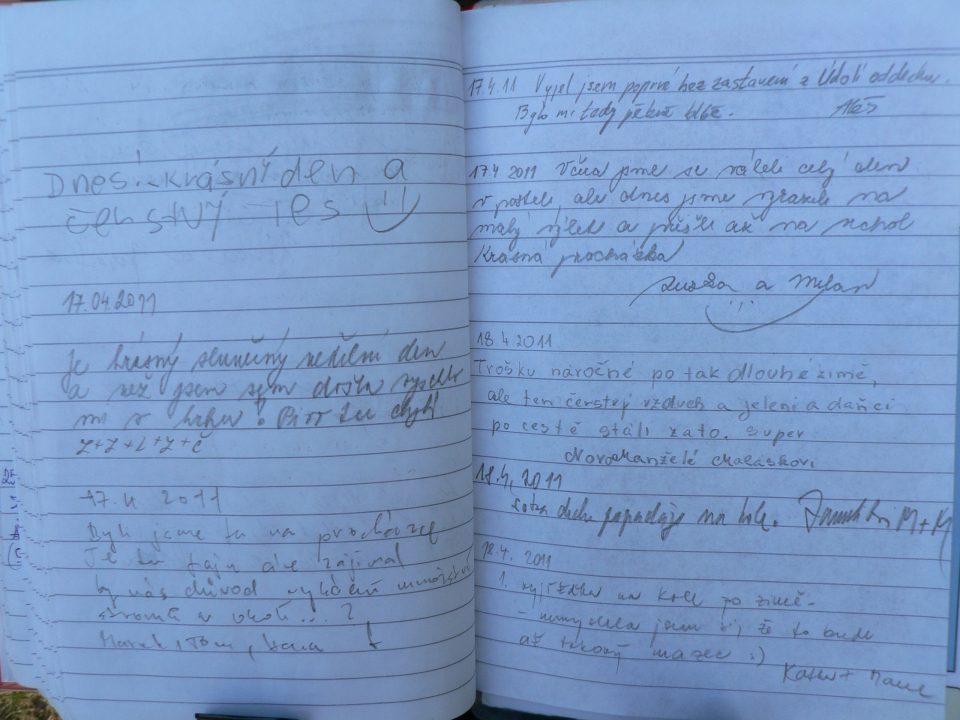 Dnes krásný den a
čerstvý les
17.04.2011
Je krásný slunečný nedělní den
a než jsem sem došla vyschlo
mi v krku. Pivo tu chybí
Z+Z+L+Z+Č
17.4 2011
Byli jsme tu na procházce
Je tu fajn ale zajímal
by nás důvod vykácení množství
stromů v okolí...?
Marek, Tom, Hana
17.4.11 Vyjel jsem poprvé bez zastavení z Údolí oddechu.
Bylo mi tady pěkně blbě. Aleš
17.4 2011 Včera jsme se váleli celý den
v posteli, ale dnes jsme vyrazili na
malý výlet a přišli až na vrchol
Krásná procházka
Zuzka a Milan
18.4 2011
Trošku náročné po tak dlouhé zimě,
ale ten čerstvý vzduch a jeleni a daňci
po cestě stáli zato. super
Novomanželé Maláskovi
18.4, 2011
dechu popadaje na kole. M+M
18.4. 2011
1. vyjížďka na kole po zimě -
- nemyslela jsem si, že to bude
až takový mazec :)